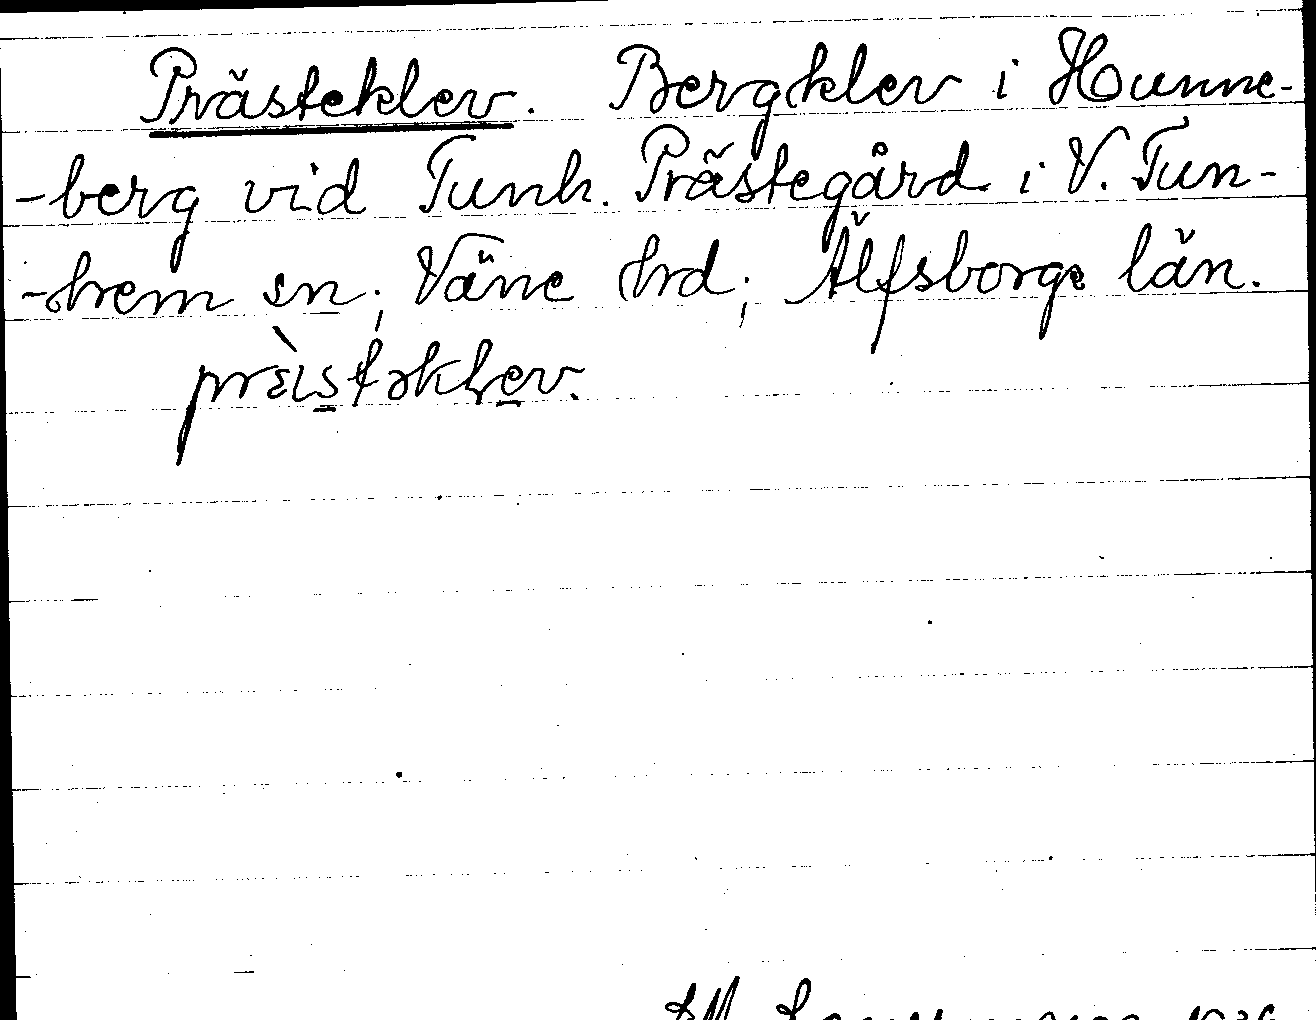 Prästeklev. Bergklev i Hunne-
-berg vid Tunh. Prästegård i V. Tun-
-hem sn; Väne hrd; Älfsborgs län.
prὲɩstəklev.